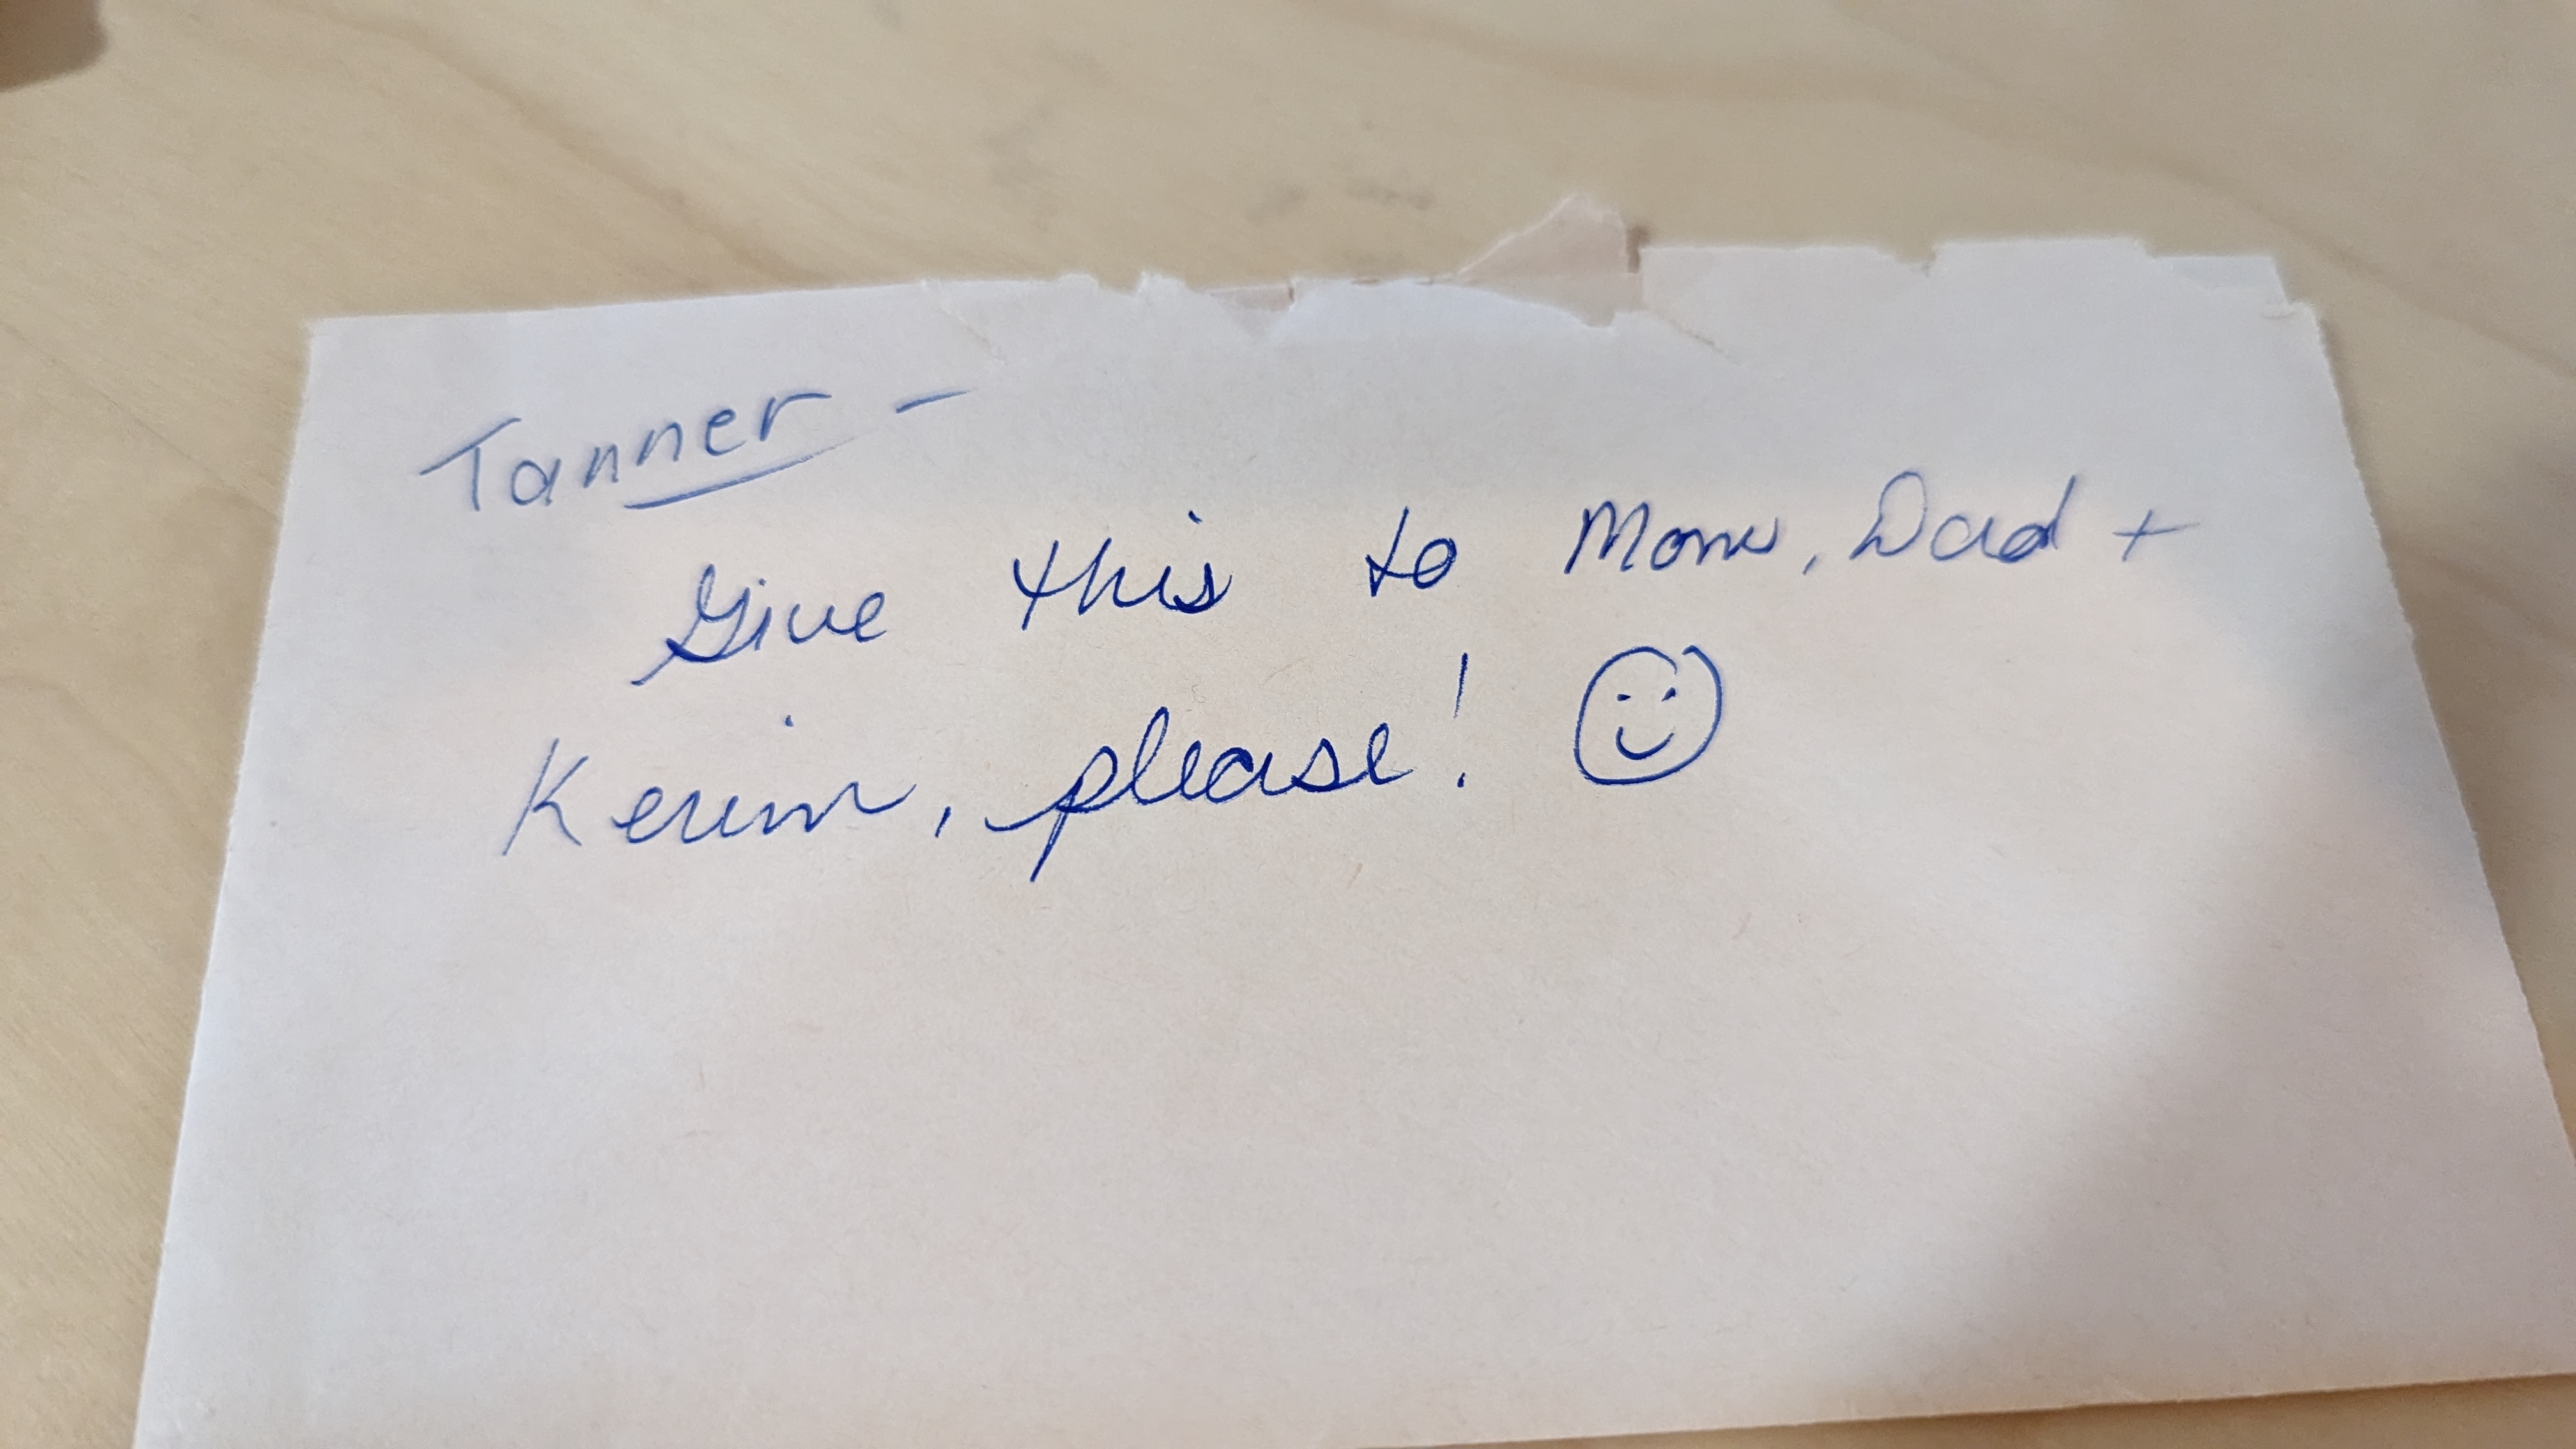 Tanner –
Give this to Mom, Dad +
Kevin, please!